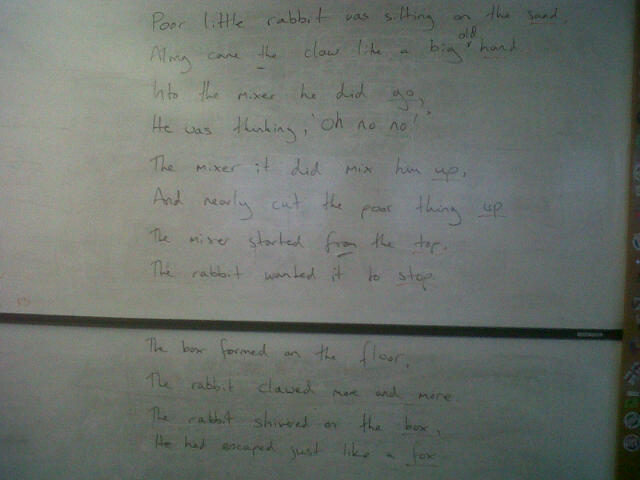 Poor little rabbit was sitting on the sand,
Along came the claw like a big old hand
Into the mixer he did go,
He was thinking, 'Oh no no!'
The mixer it did mix him up,
And nearly cut the poor thing up
The mixer started from the top,
The rabbit wanted it to stop.
The box formed on the floor,
The rabbit clawed more and more
The rabbit shivered on the box,
He had escaped just like a fox